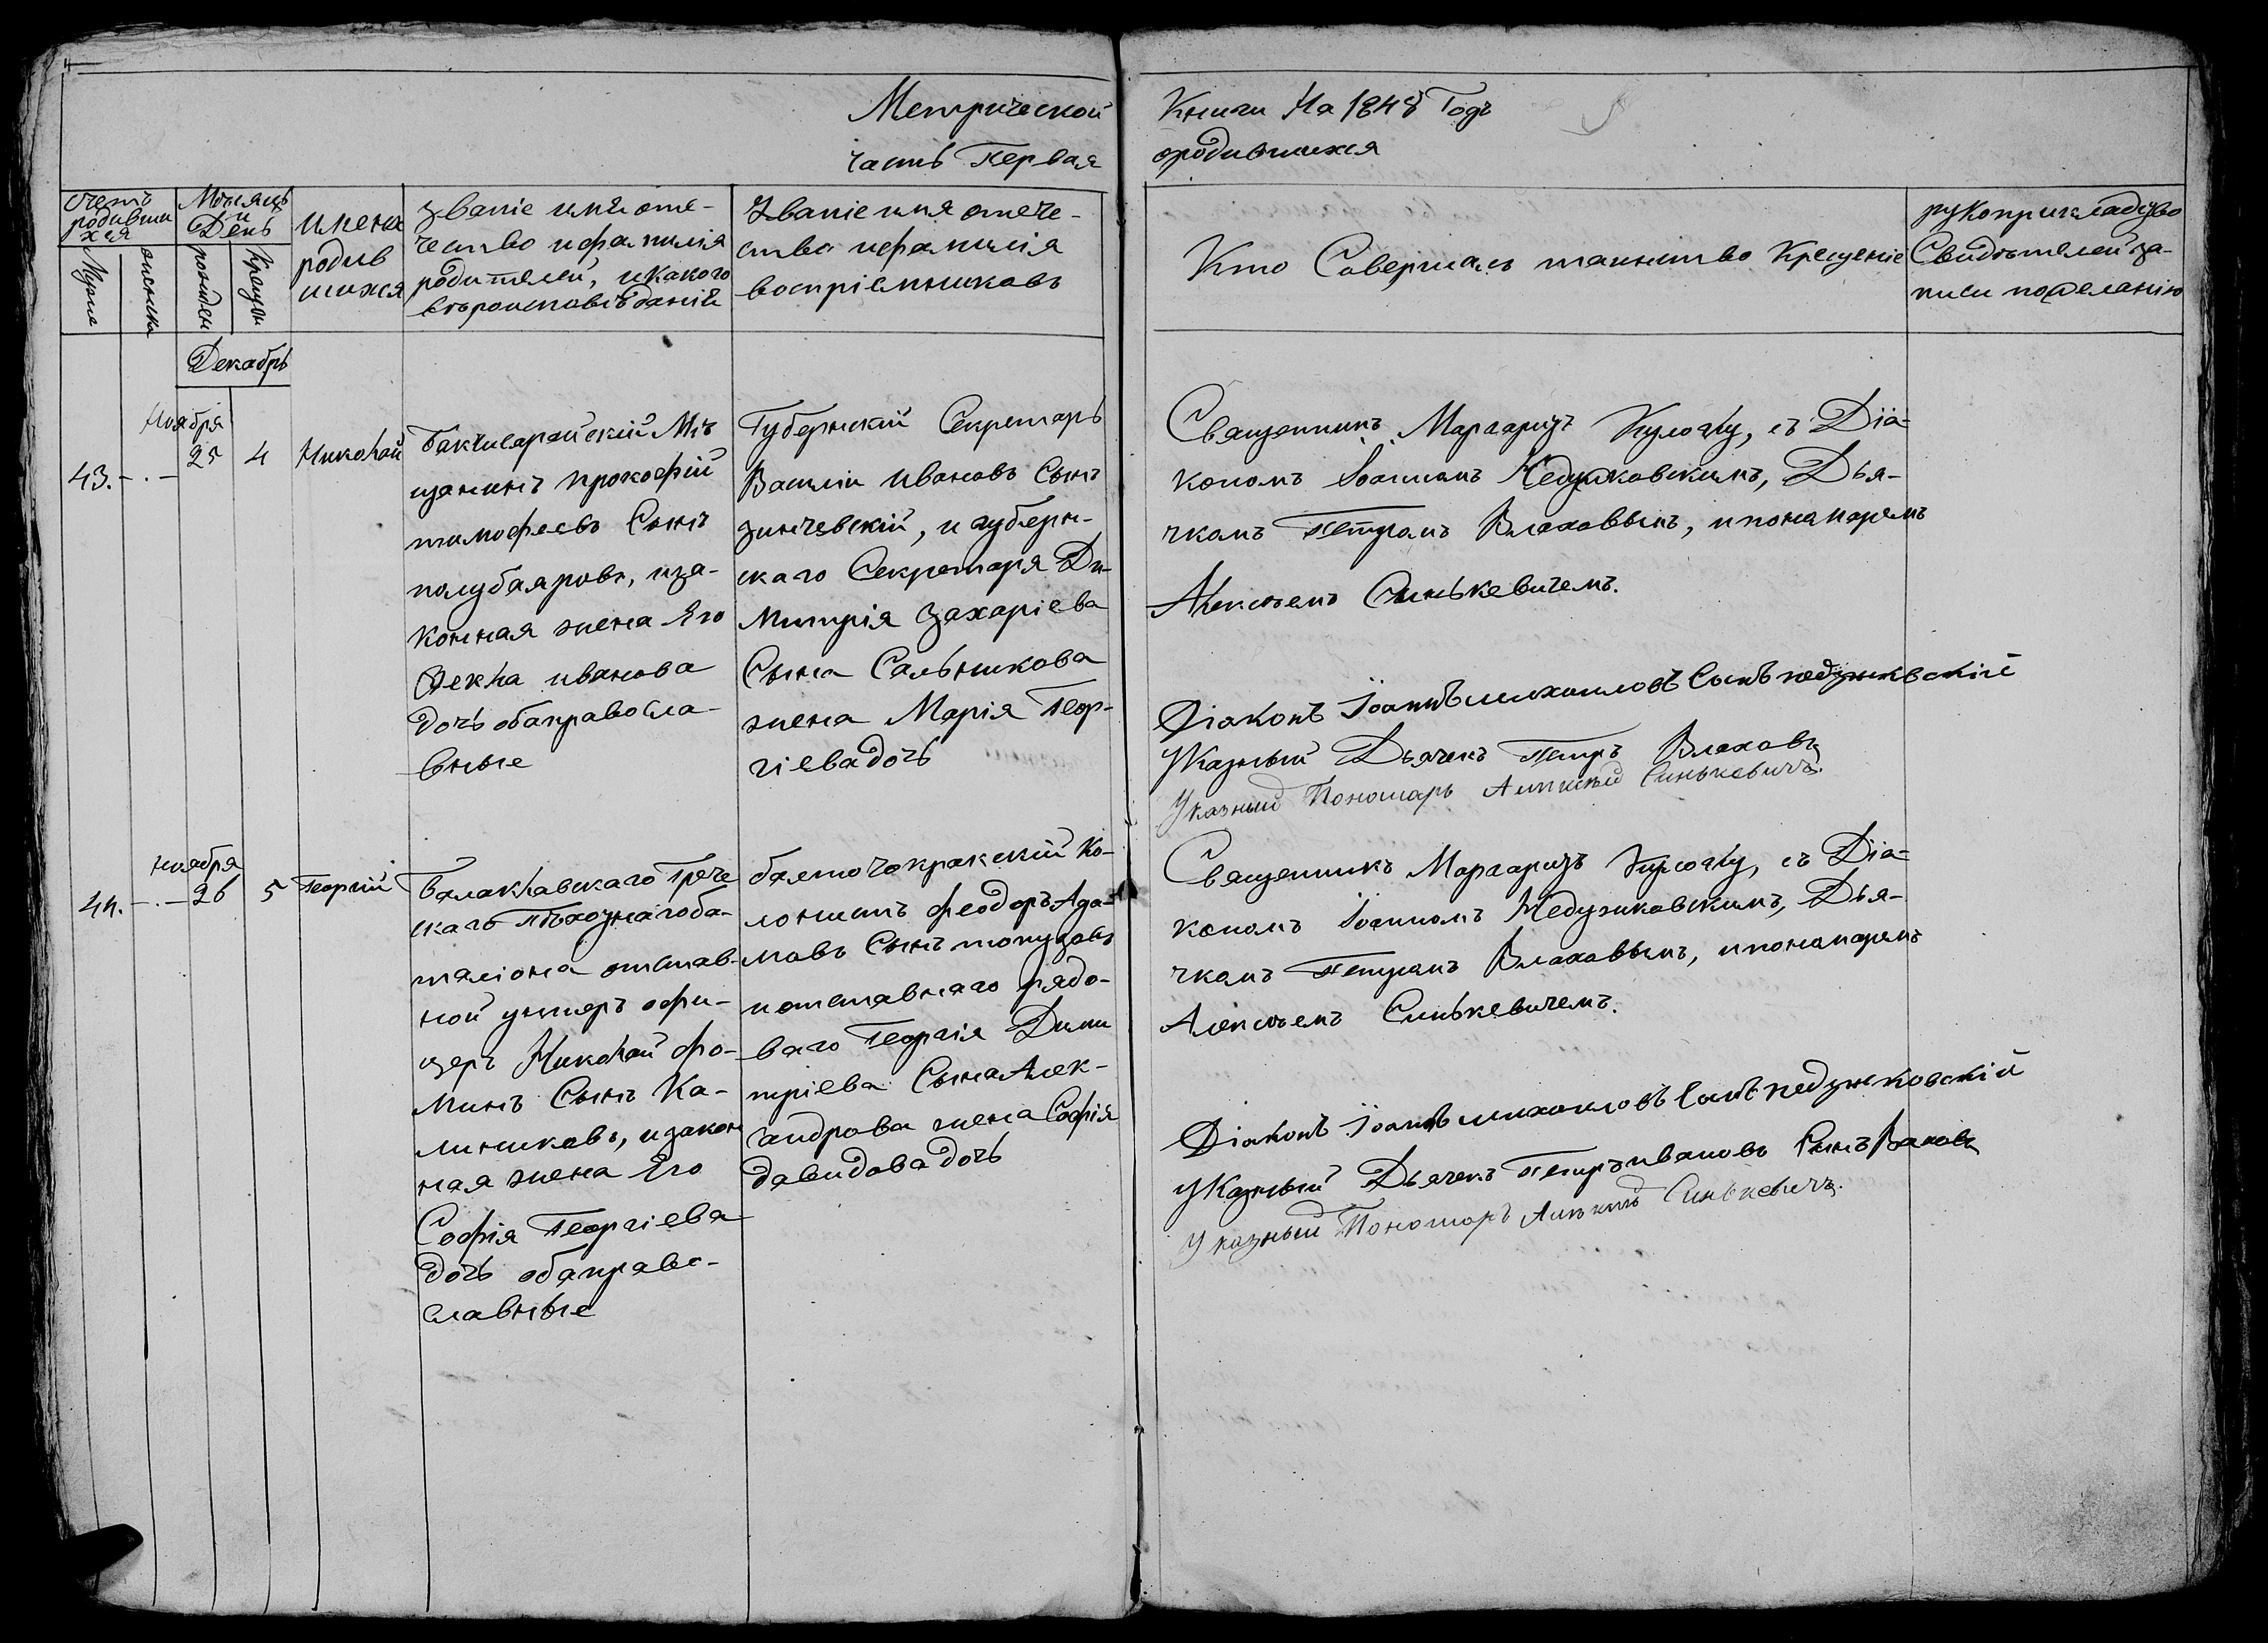 Метрической
часть Первая
Книги На 1848 Годъ
ородившихся
Счетъ
родивши
хся
Мужеска
женска
Мѣсяцъ
и
День
рожден
Крещен
имена
родив
шихся
Званіе имя оте-
чество ифамилія
родителей, икакого
вѣроисповѣданія
Званіе имя отече-
ство ифамилія
воспріемниковъ
Кто Совершалъ таинство Крещеніе
рукоприкладство
Свидѣтелей за-
писи пожеланію
Декабрь
Ноября
43. - . - 25 4
Николай
Бакчисарайскій Мѣ
щанинъ прокофій
тимофеевъ Сынъ
полубаяровъ, иза-
конная жена Его
Фекла иванова
дочь обаправосла-
вные
Губернскій Секретарь
Василій ивановъ Сынъ
зинчевскій, и губерн-
скаго Секретаря Ди-
митрія Захаріева
Сына Сальникова
жена Марія Геор-
гіевадочь
Священникъ Маргаритъ съ Діа-
кономъ Іоанномъ Недужковскимъ, Дья-
чкомъ Петромъ Влаховымъ, ипономаремъ
Алексѣемъ Синькевичемъ.
Діаконъ Іоаннъ михаиловъ Сынъ недужковскій
Указный Дьячекъ Петръ Влаховъ
Указный Пономарь Алексѣй Синькевичъ.
ноября
44. - . - 26 5
Георгій
Балаклавскаго Грече
скаго Пѣхотнагоба-
таліона отстав-
ной унтеръ офи-
церъ Николай фо-
минъ Сынъ Ка-
линиковъ, изакон
ная жена Его
Софія Георгіева
дочь обаправо-
славные
чокракскій ко-
лонистъ феодоръ Ада-
мовъ Сынъ топузовъ
иотставнаго рядо-
ваго Георгія Дими
тріева СынаАлек-
сандрова жена Софія
давидовадочь
Священникъ Маргаритъ съ Діа-
кономъ Іоанномъ Недужковскимъ, Дья-
чкомъ Петромъ Влаховымъ, ипономаремъ
Алексѣемъ Синькевичемъ.
Діаконъ Іоаннъ михаиловъ Сынъ недужковскій
Указный Дьячекъ Петръ ивановъ Сынъ Влаховъ
Указный Пономарь Алексѣй Синькевичъ.